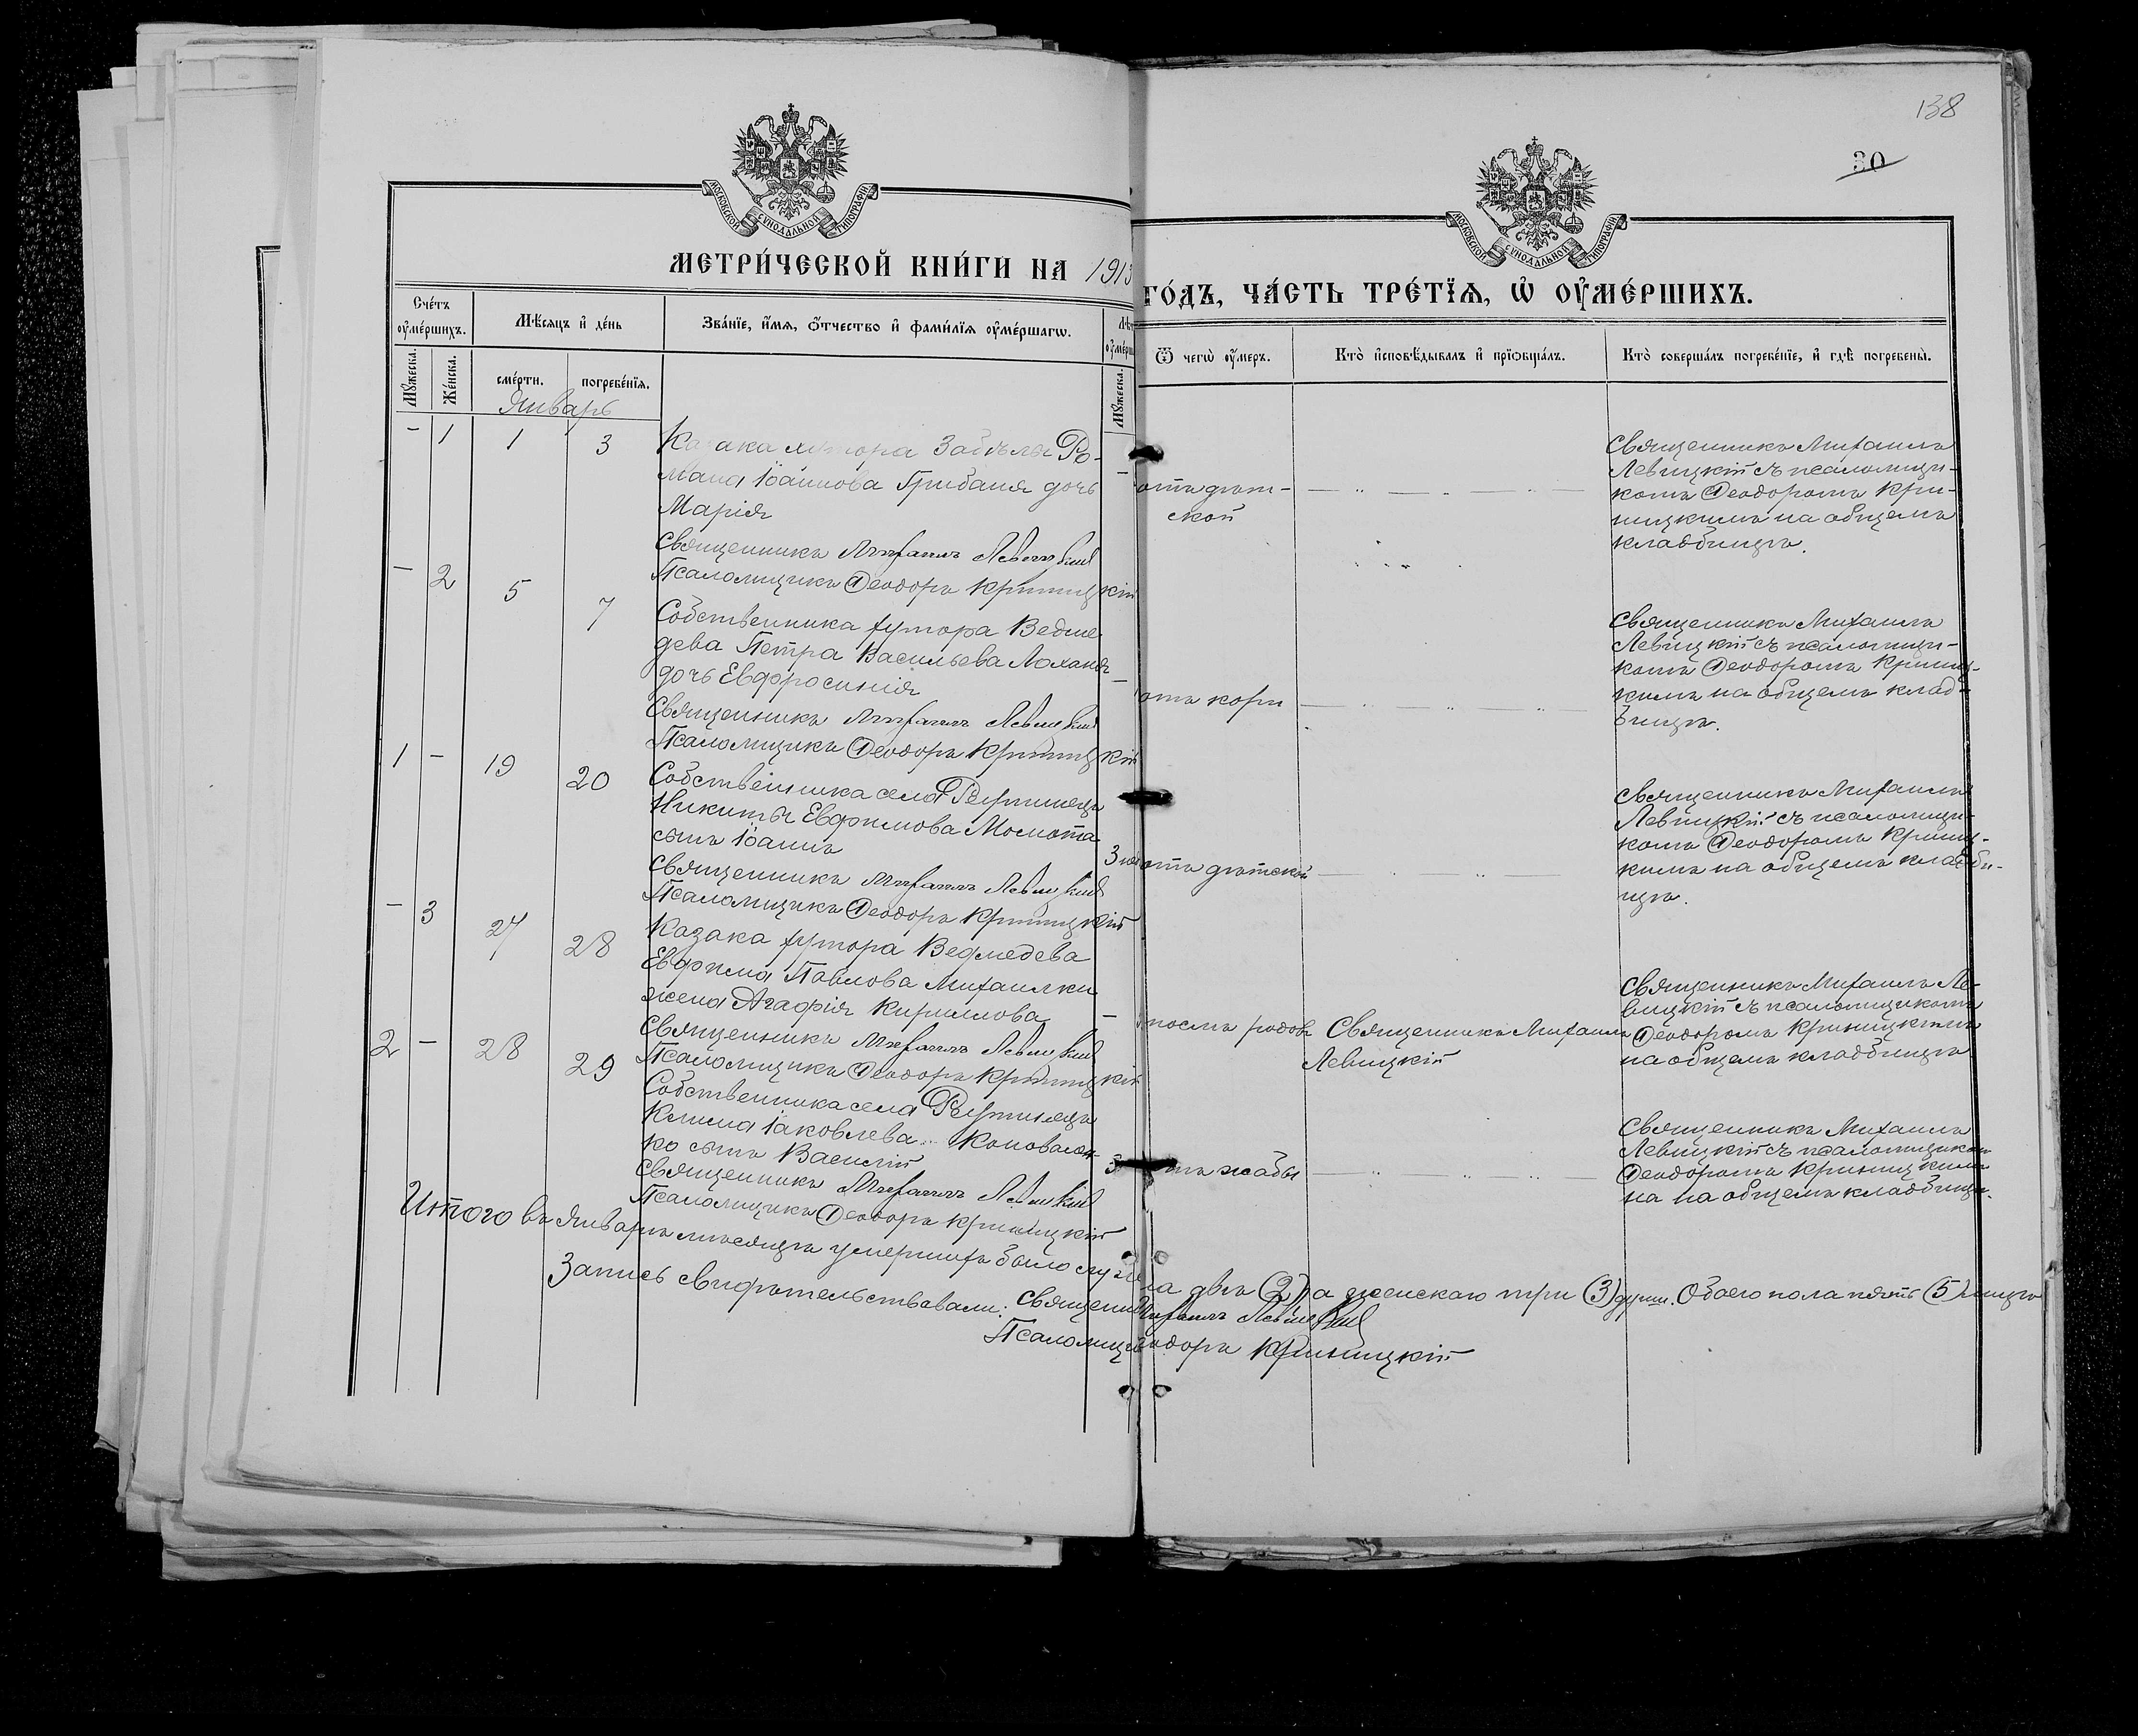 138
30
МОСКОВСКОЙ СѴНОДАЛЬНОЙ ТИПОГРАФІИ
МОСКОВСКОЙ СѴНОДАЛЬНОЙ ТИПОГРАФІИ
МЕТРИ́ЧЕСКОЙ КНИ́ГИ НА 1913
ГО́ДЪ, ЧА́СТЬ ТРЕ́ТЇѦ, Ѡ҆ ОУ҆МЕ́РШИХЪ.
Сче́тъ оу҆ме́ршихъ.
Мꙋ́жеска.
Же́нска.
Мѣ́сяцъ и҆ де́нь
сме́рти.
погребе́нїѧ.
Зва́нїе, и҆́мѧ, ѻ҆́тчество и҆ фами́лїѧ оу҆ме́ршагѡ.
Мꙋ́жеска.
Ѿ чегѡ̀ оу҆́меръ.
Кто̀ и҆сповѣ́дывалъ и҆ прїѻбща́лъ.
Кто̀ соверша́лъ погребе́нїе, и҆ гдѣ̀ погребены̀.
Январь
- 1 1 3
Казака хутора Забѣлы Ро-
мана Іоаннова Грибаня дочь
Марія
Священникъ Михаилъ Левицкій
Псаломщикъ Ѳеодоръ Криницкій
отъ дѣт-
ской
Священникъ Михаилъ
Левицкій съ псаломщи-
комъ Ѳеодоромъ Кри-
ницкимъ на общемъ
кладбищѣ.
- 2 5 7
Собственника хутора Ведме
дева Петра Васильева Лоханя
дочь Евфросинія
Священникъ Михаилъ Левицкій
Псаломщикъ Ѳеодоръ Криницкій
отъ кори
Священникъ Михаилъ
Левицкій съ псаломщи-
комъ Ѳеодоромъ Криниц-
кимъ на общемъ клад-
бищѣ.
1 - 19 20
Собственника села Ретинецъ
Никиты Евфимова Момота
сынъ Іоаннъ
Священникъ Михаилъ Левицкій
Псаломщикъ Ѳеодоръ Криницкій
отъ дѣтской
Священникъ Михаилъ
Левицкій съ псаломщи-
комъ Ѳеодоромъ Криниц-
кимъ на общемъ кладби-
щѣ.
- 3 27 28
Казака хутора Ведмедева
Евфима Павлова Михаилки
жена Агафія Кириллова
Священникъ Михаилъ Левицкій
Псаломщикъ Ѳеодоръ Криницкій
послѣ родовъ
Священникъ Михаилъ
Левицкій
Священникъ Михаилъ Ле-
вицкій съ псаломщикомъ
Ѳеодоромъ Криницкимъ
на общемъ кладбищѣ
2 - 28 29
Собственника села Ретинецъ
Клима Іаковлева Коновален-
ко сынъ Василій
Священникъ Михаилъ Левицкій
Псаломщикъ Ѳеодоръ Криницкій
жабы
Священникъ Михаилъ
Левицкій съ псаломщиком
Ѳеодоромъ Криницкимъ
на на общемъ кладбищѣ.
Итого въ Январѣ мѣсяцѣ умершихъ было два (2), а женскаго три (3) души. Обоего пола пять (5) лицъ
Запись свидѣтельствовали: Священни Михаилъ Левицкій
Псаломщи Ѳеодоръ Криницкій